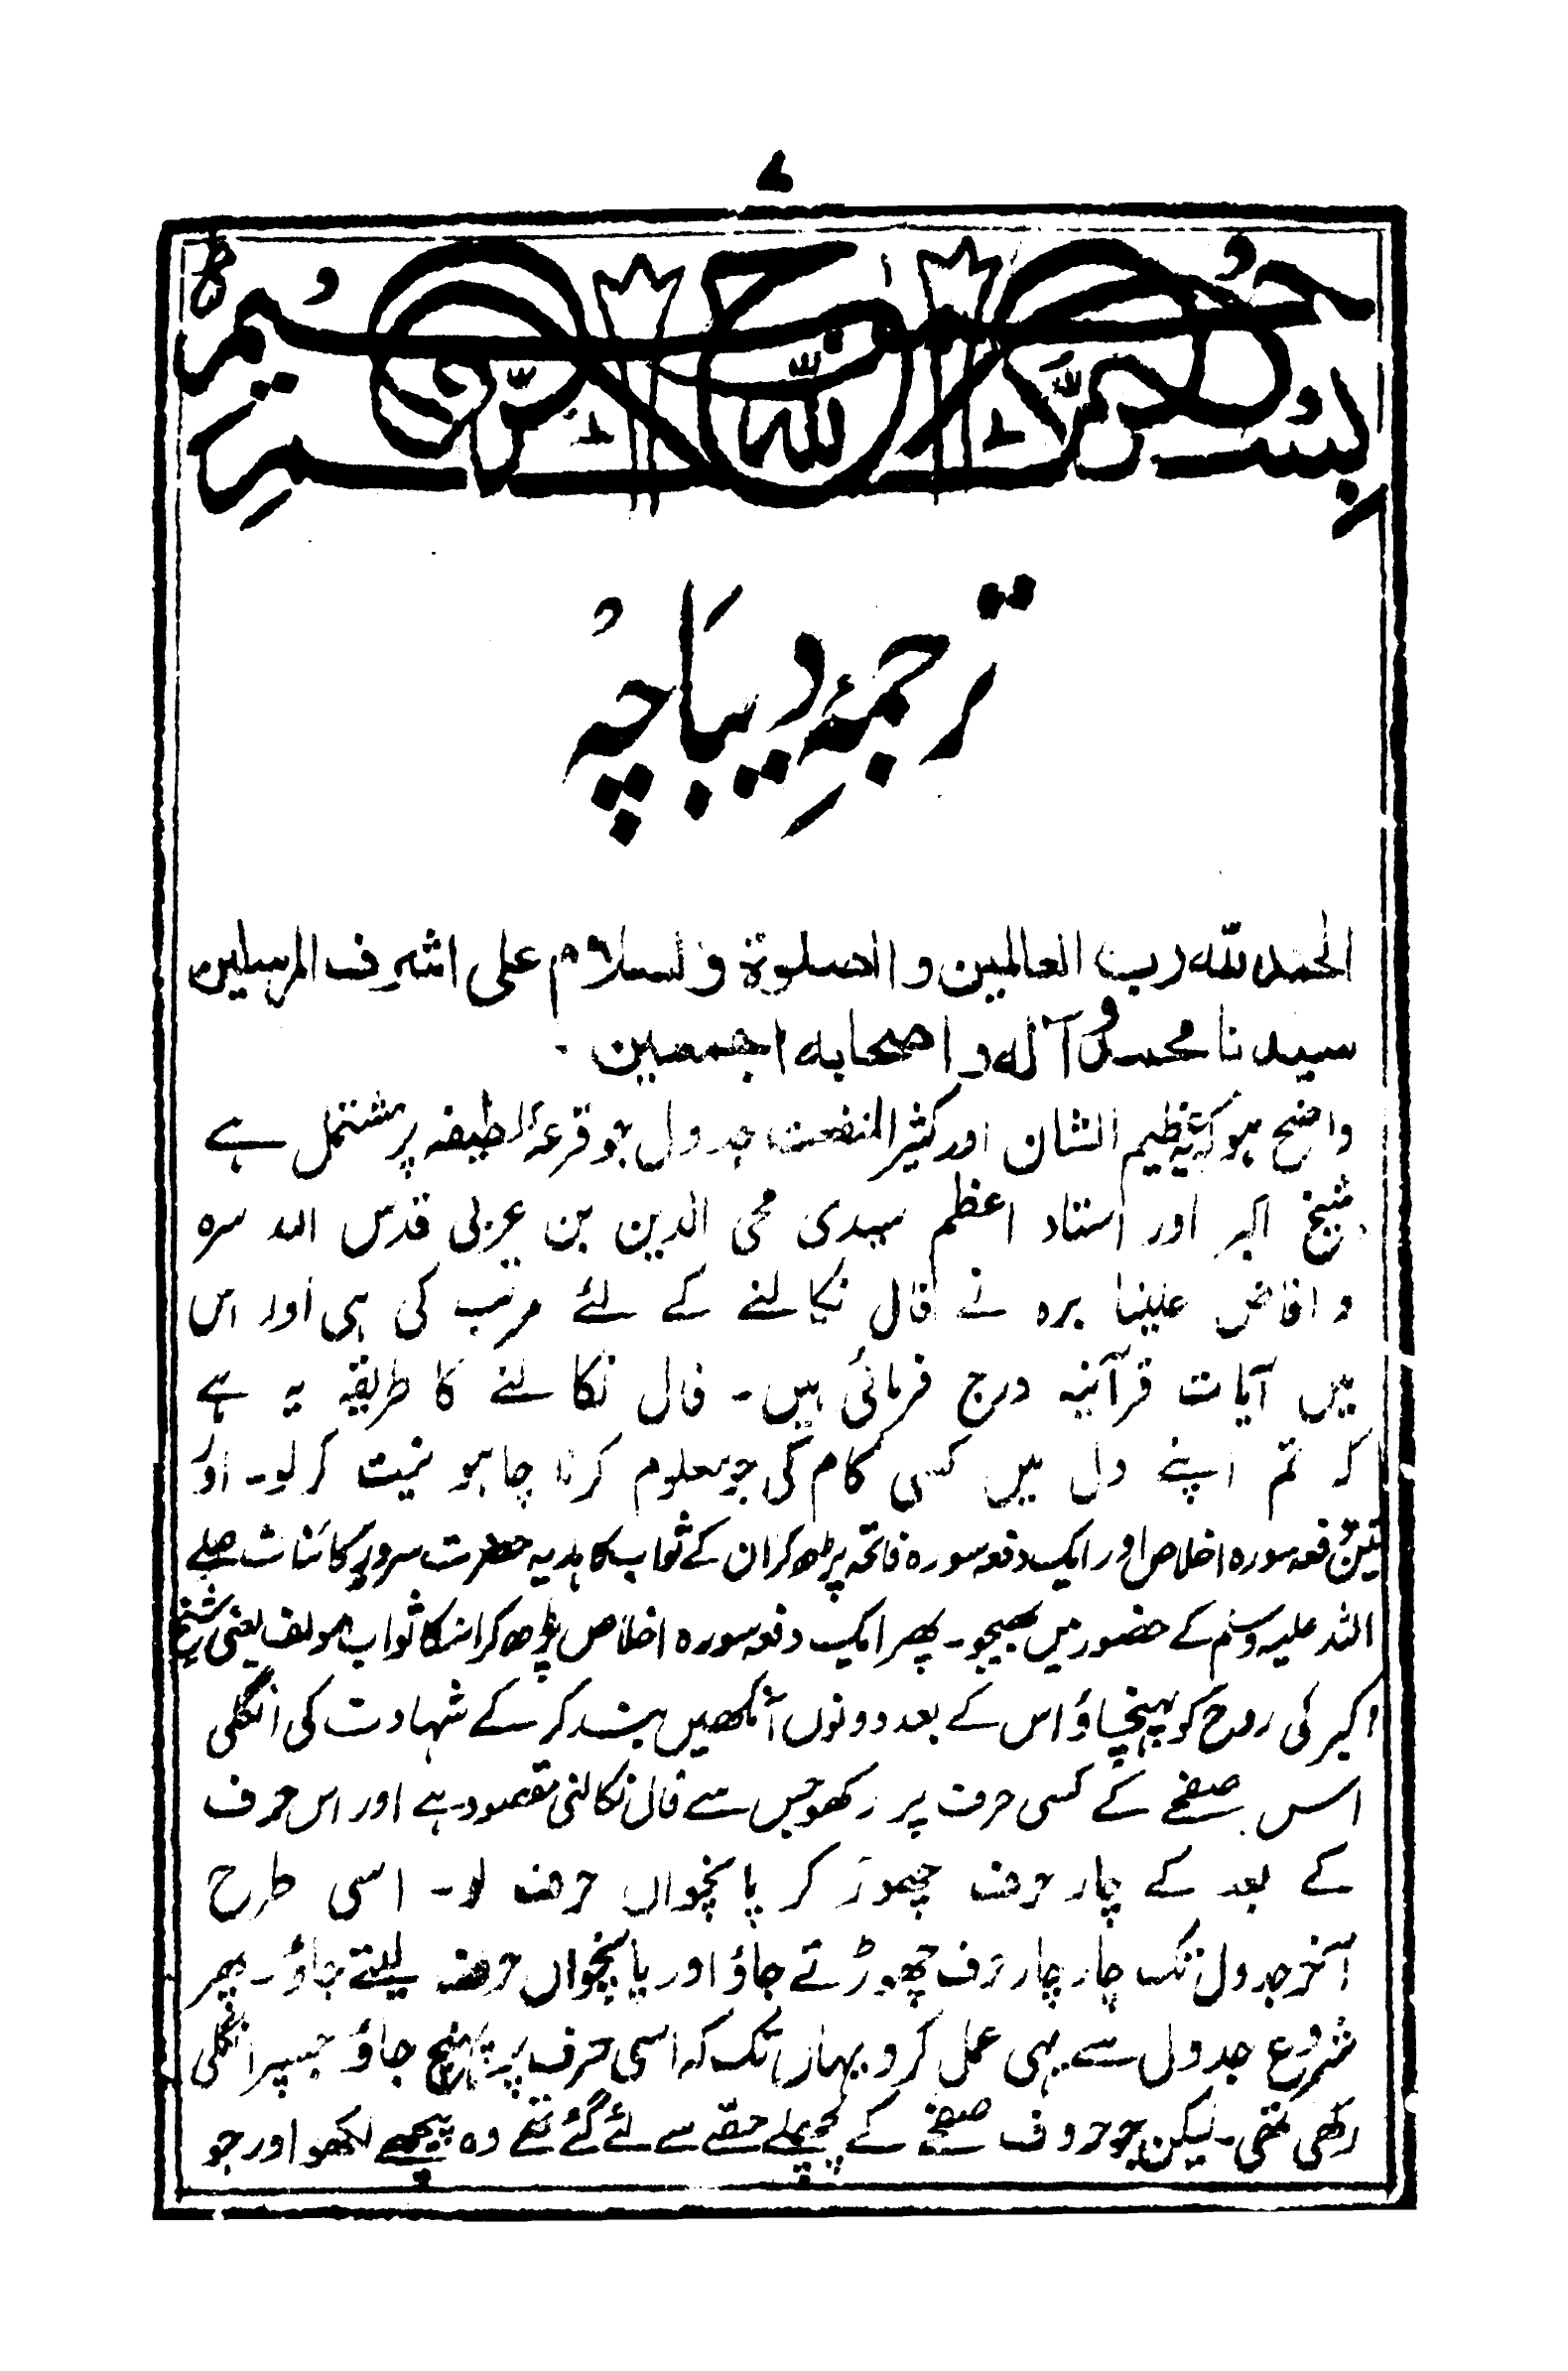 ۷
بسم الله الرحمن الرحيم
ترجمۂ دیباچہ
الحمد لله رب العالمين و الصلوة و السلام على اشرف المرسلين
سيدنا محمد و آله و اصحابه اجمعين .
واضح ہو کہ یہ عظیم الشان اور کثیر المنفعت جدول جو قرعۂ لطیفہ پر مشتمل ہے
شیخ اکبر اور استاد اعظم سیدی محی الدین بن عربی قدس اللہ سرہ
و افاض علینا برہ نے فال نکالنے کے لئے مرتب کی ہی اور اس
میں آیات قرآنیہ درج فرمائی ہیں۔ فال نکالنے کا طریقہ یہ ہے
کہ تم اپنے دل میں کسی کام کی جو معلوم کرنا چاہو نیت کرلو۔ اور
تین دفعہ سورہ اخلاص اور ایک دفعہ سورہ فاتحہ پڑھ کر ان کے ثواب کا ہدیہ حضرت سرور کائنات صلے
اللہ علیہ وسلم کے حضور میں بھیجو۔ پھر ایک دفعہ سورہ اخلاص پڑھ کر اسکا ثواب مولف یعنی شیخ
اکبر کی روح کو پہنچاؤ اس کے بعد دونوں آنکھیں بند کر کے شہادت کی انگلی
اس صفحے کے کسی حرف پر رکھو جس سے فال نکالنی مقصود ہے اور اس حرف
کے بعد کے چار حرف چھوڑ کر پانچواں حرف لو۔ اسی طرح
آخر جدول تک چار چار حرف چھوڑتے جاؤ اور پانچواں حرف لیتے جاؤ۔ پھر
شروع جدول سے یہی عمل کرو یہاں تک کہ اسی حرف پر پہنچ جاؤ جسپر انگلی
رکھی تھی۔ لیکن جو حروف صفحے کے پچھلے حصے سے لئے گئے تھے وہ پیچھے لکھو اور جو